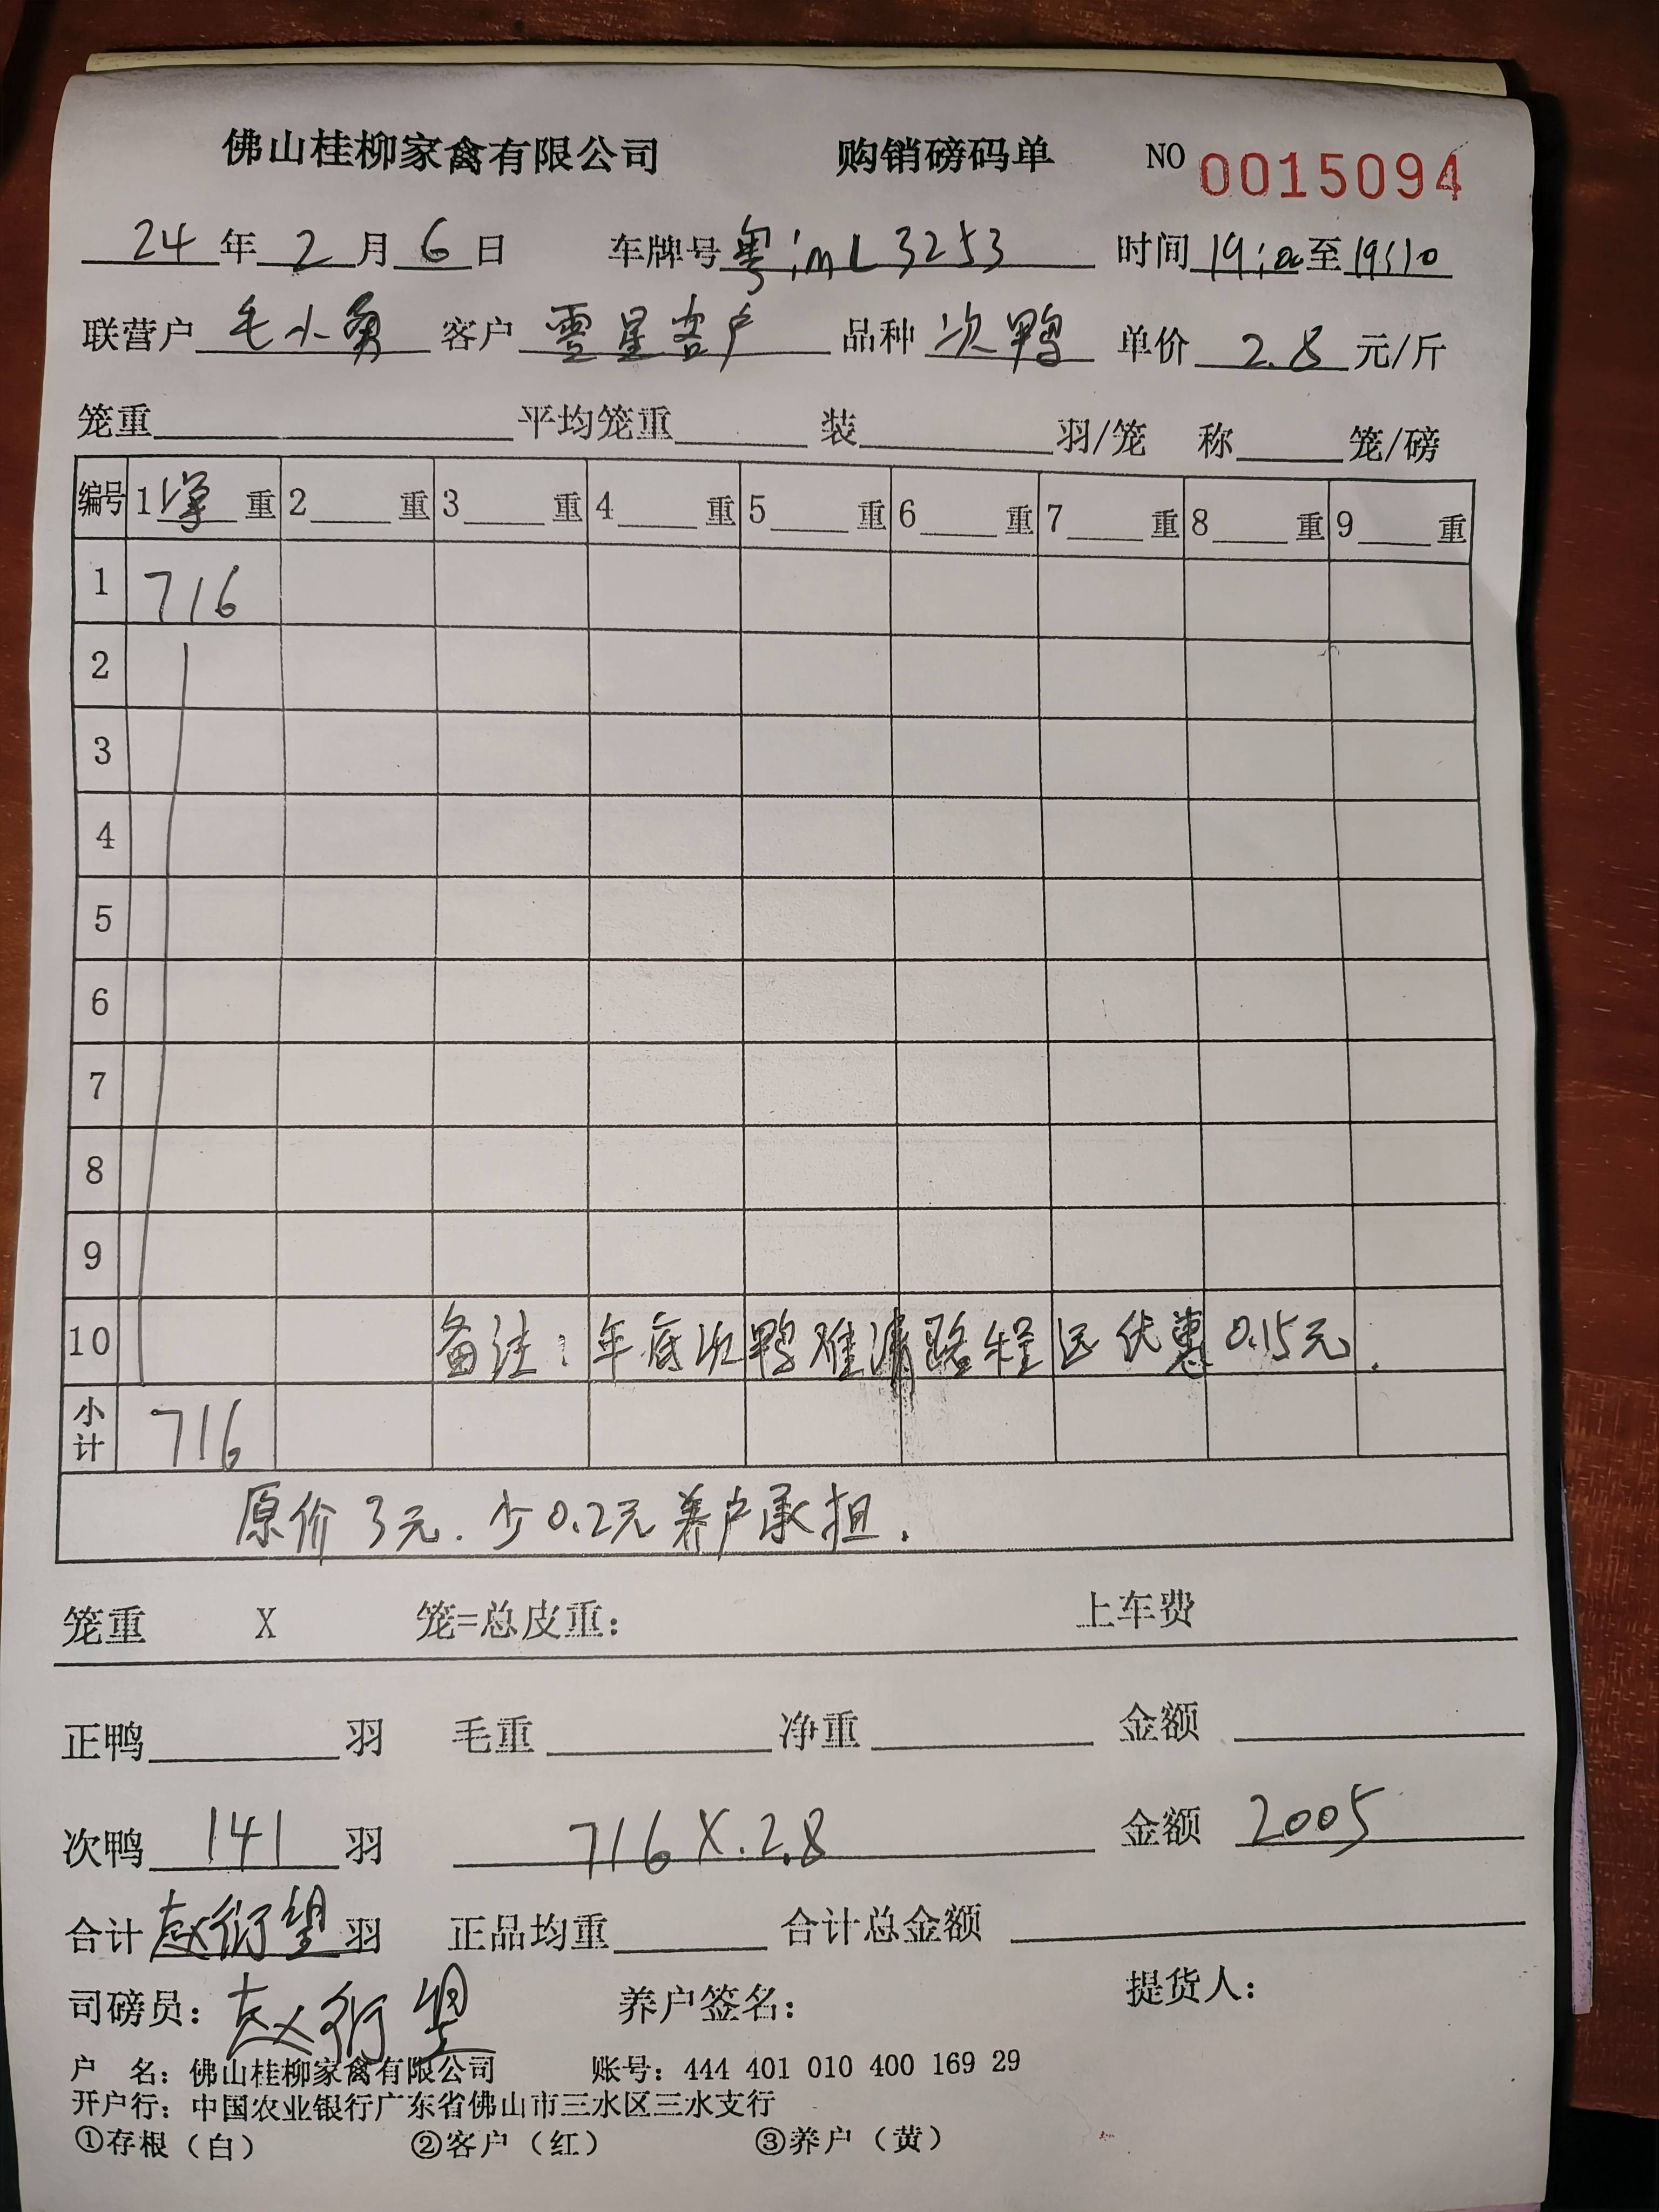 佛山桂柳家禽有限公司 购销磅码单 NO 0015094
24年2月6日 车牌号 粤 L3253 时间 19: 至 19:10
联营户 毛小勇 客户 零星客户 品种 次鸭 单价 2.8 元/斤
笼重 平均笼重 装 羽/笼 称 笼/磅
编号 1 净 重 2 重 3 重 4 重 5 重 6 重 7 重 8 重 9 重
1 716
2
3
4
5
6
7
8
9
10 备注:年底次鸭难清路程远优惠0.15元.
小计 716
原价3元.少0.2元养户承担.
笼重 X 笼=总皮重: 上车费
正鸭 羽 毛重 净重 金额
次鸭 141 羽 716X.2.8 金额 2005
合计 赵衍望 羽 正品均重 合计总金额
司磅员: 赵衍望 养户签名: 提货人:
户 名: 佛山桂柳家禽有限公司 账号: 444 401 010 400 169 29
开户行: 中国农业银行广东省佛山市三水区三水支行
①存根(白) ②客户(红) ③养户(黄)